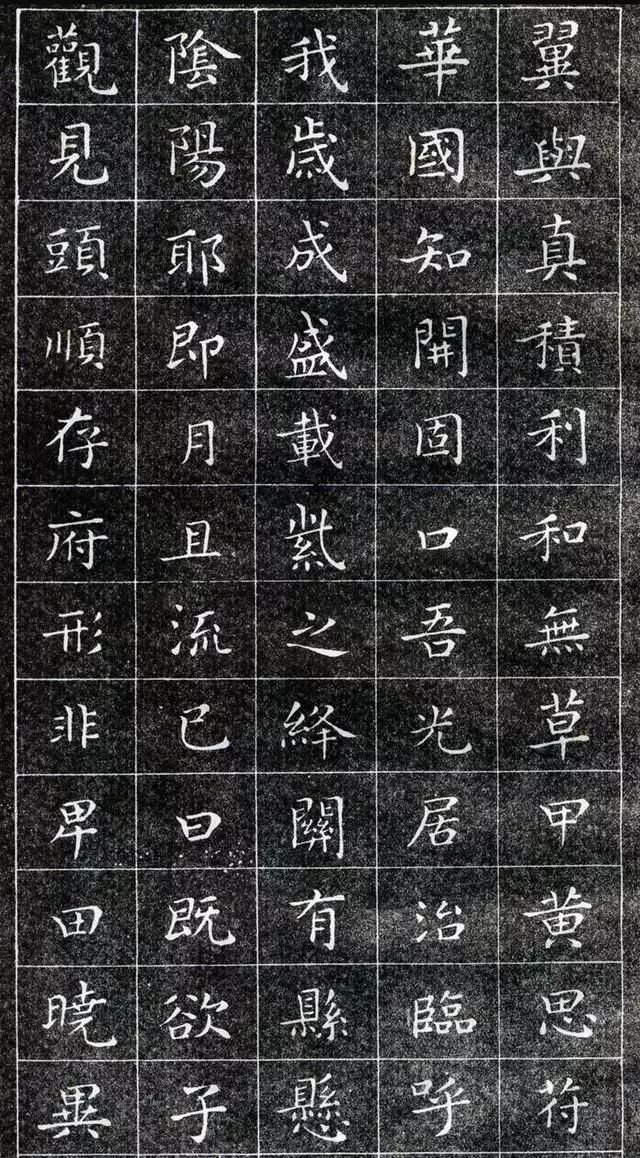 翼與真積利和無草甲黄思苻
華國知開固口吾光居治臨呼
我歲成盛載紫之絳關有縣懸
陰陽耶即月且流已曰既欲子
觀見頭順存府形非卑田曉異